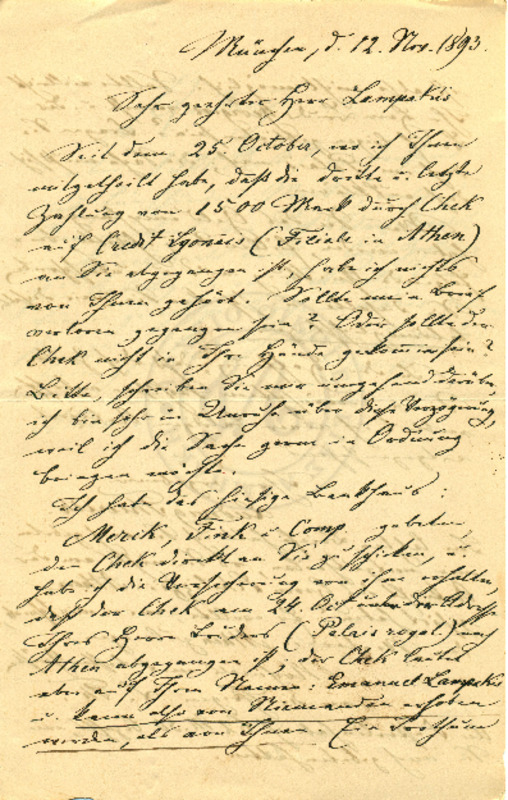 München, d. 12. Nov. 1893.
Sehr geehrter Herr Lampakis
Seit dem 25. October, wo ich Ihnen
mitgetheilt habe, daß die dritte u. letzte
Zahlung von 1500 Mark durch Chek
auf Credit Lyonnis (Filiale in Athen)
an Sie abgegangen ist, habe ich nichts
von Ihnen gehört. Sollte mein Brief
verloren gegangen sein? Oder sollte der
Chek nicht in Ihre Hände gekommen sein?
Bitte, schreiben Sie mir umgehend darüber,
ich bin sehr in Unruhe über diese Verzögerung,
weil ich die Sache gerne in Ordnung
bringen möchte.
Ich habe das hiesige Bankhaus:
Merik, Fink u. Comp. gebeten,
den Chek direkt an Sie zu schicken, u.
habe ich die Versicherung von ihm erhalten,
daß der Chek am 24. Oct unter der Adresse
Ihres Herrn Bruders (Palais royal) nach
Athen abgegangen ist, der Chek lautet
aber auf Ihren Namen: Emanuel Lampakis
u. kann also von Niemanden erhoben
werden, als von Ihnen. Ein Irrthum